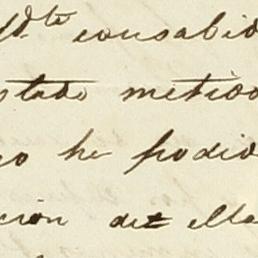 consabido
stado metido
no he podido
cion de ella